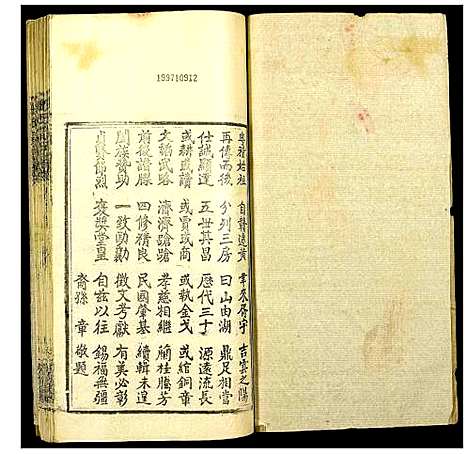 199710912
再傳而後 分列三房 曰山由湖 鼎足相當
仕誠顯達 五世其昌 歷代三十 源遠流長
或耕或讀 或賈或商 或執金戈 或綰銅章
文韜武略 濟濟蹌蹌 孝慈相繼 蘭桂騰芳
前後譜牒 四修精良 民國肇基 續輯未遑
闔族贊助 一致勷勷 徵文考獻 有美必彰
褒奬堂皇 自茲以往 錫福無疆
裔孫 章 敬題